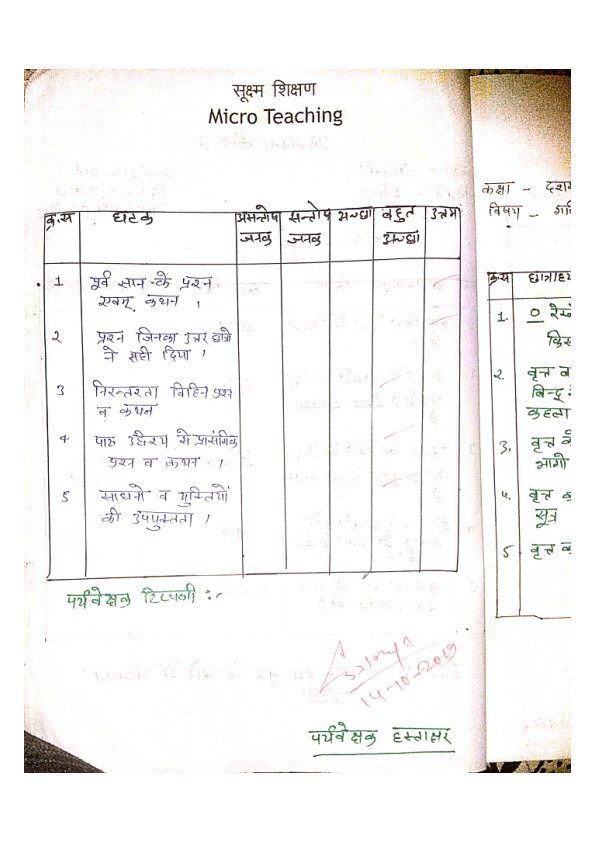 सूक्ष्म शिक्षण
Micro Teaching
क्र.स घटक असन्तोष जनक सन्तोष जनक अच्छा बहुत अच्छा उत्तम
1 पूर्व ज्ञान के प्रश्न
एवम् कथन ।
2 प्रश्न जिनका उत्तर छात्रो
ने सही दिया ।
3 निरन्तरता विहिन प्रश्न
व कथन
4 पाठ उद्देश्य से प्रासंगिक
प्रश्न व कथन ।
5 साधनो व युक्तियों
की उपयुक्तता ।
पर्यवेक्षक टिप्पणी :-
14-10-2019
पर्यवेक्षक हस्ताक्षर
कक्षा -
विषय -
क्र.स
1.
2. वृत्त
बिन्दु
3. वृत्त
भागो
4. वृत्त
सूत्र
5. वृत्त